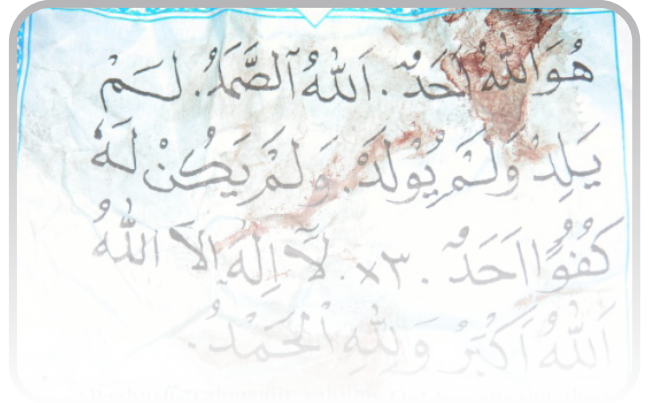 هُوَ اللّٰهُ اَحَدٌ . اَللّٰهُ الصَّمَدُ . لَـمْ
يَـلِدْ وَلَـمْ يُوْلَدْ . وَ لَمْ يَكُنْ لَهٗ
كُفُوًا اَحَدٌ . ٣× . لَآ اِلٰهَ اِلاَّ اللّٰهُ
اَللّٰهُ اَكْبَرُ وَ لِلّٰهِ الْحَمْدُ .